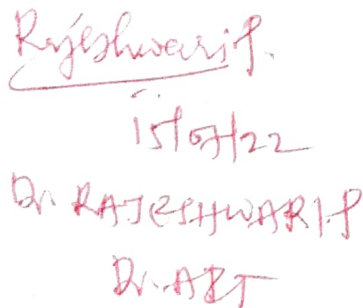 Rajeshwari.P.
15/07/22
Dr. RAJESHWARI.P
Dr. ABT